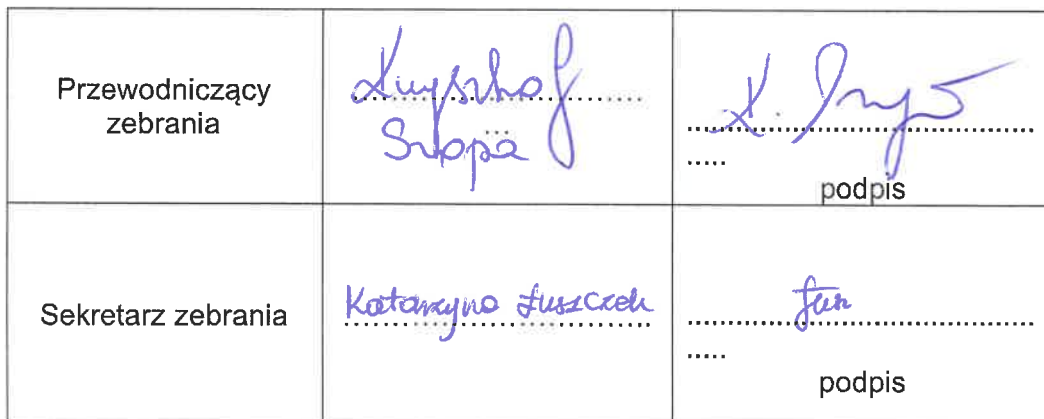 Przewodniczący
zebrania
Krzysztof
Szopa
K.
podpis
Sekretarz zebrania
Katarzyna Łuszczek
podpis